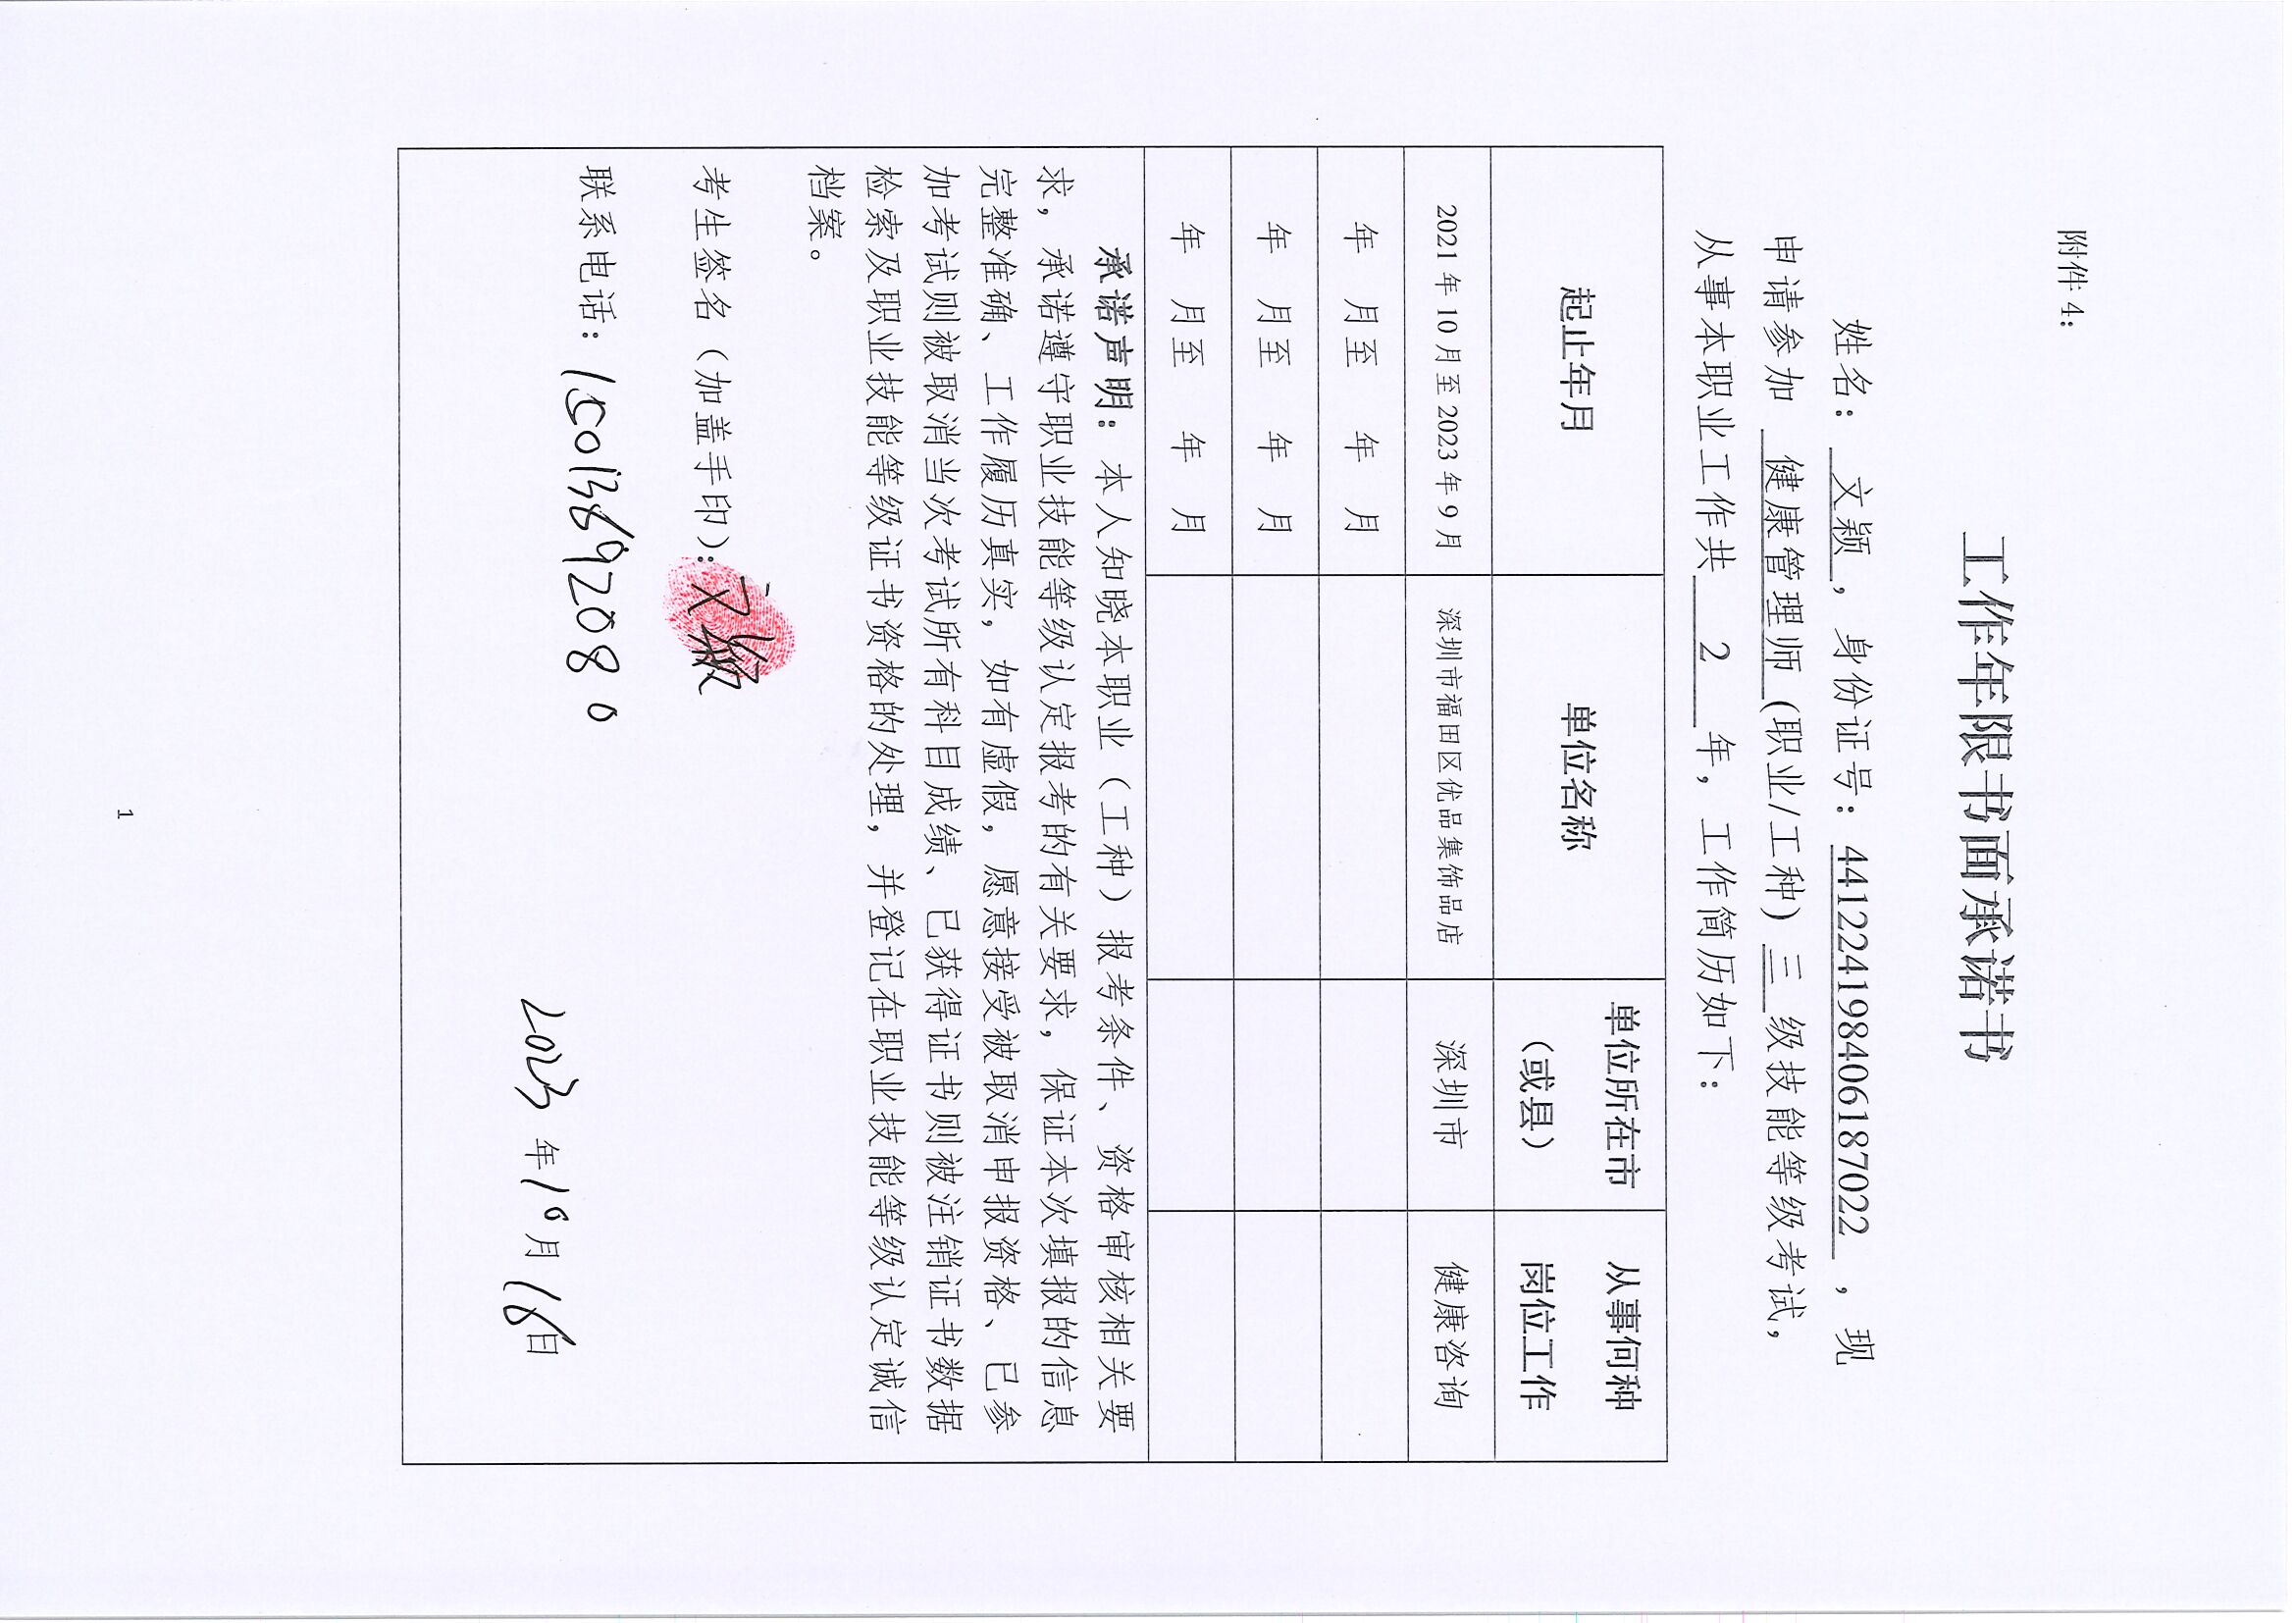 附件 4：
工作年限书面承诺书
姓名： 文颖 ，身份证号：441224198406187022 ，现
申请参加 健康管理师 (职业/工种) 三 级技能等级考试，
从事本职业工作共 2 年，工作简历如下：
起止年月 单位名称 单位所在市（或县） 从事何种岗位工作
2021 年 10 月至 2023 年 9 月 深圳市福田区优品集饰品店 深圳市 健康咨询
年 月至 年 月
年 月至 年 月
年 月至 年 月
承诺声明：本人知晓本职业（工种）报考条件、资格审核相关要
求，承诺遵守职业技能等级认定报考的有关要求，保证本次填报的信息
完整准确、工作履历真实，如有虚假，愿意接受被取消申报资格、已参
加考试则被取消当次考试所有科目成绩、已获得证书则被注销证书数据
检索及职业技能等级证书资格的处理，并登记在职业技能等级认定诚信
档案。
考生签名（加盖手印）：文颖
联系电话：
2023 年 10 月 18 日
1